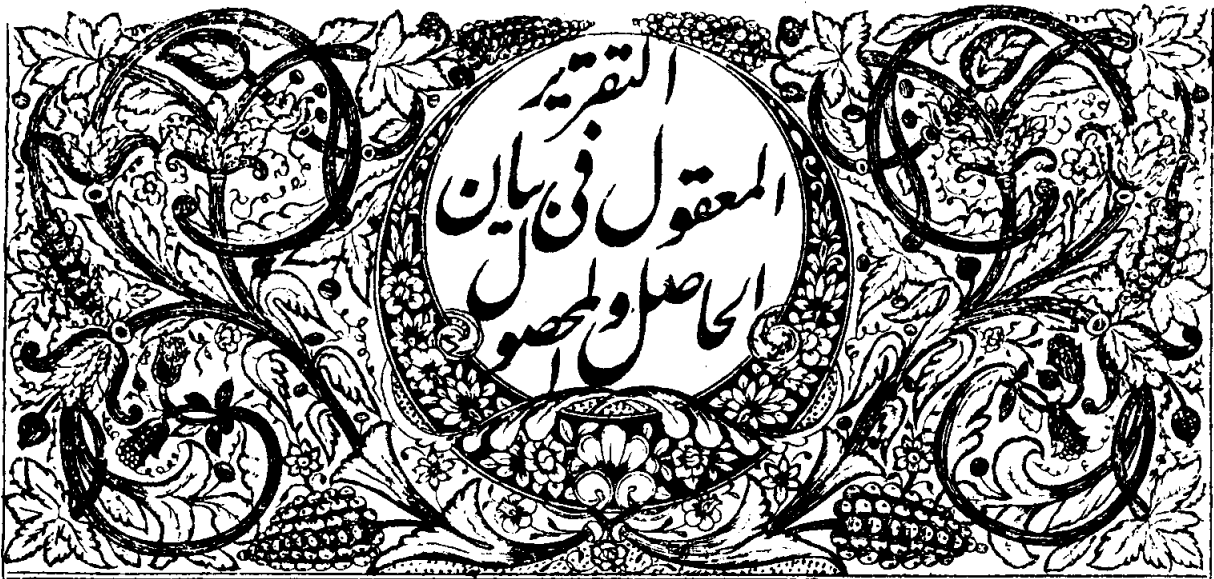 التقرير
المعقول فی بیان
الحاصل والمحصول